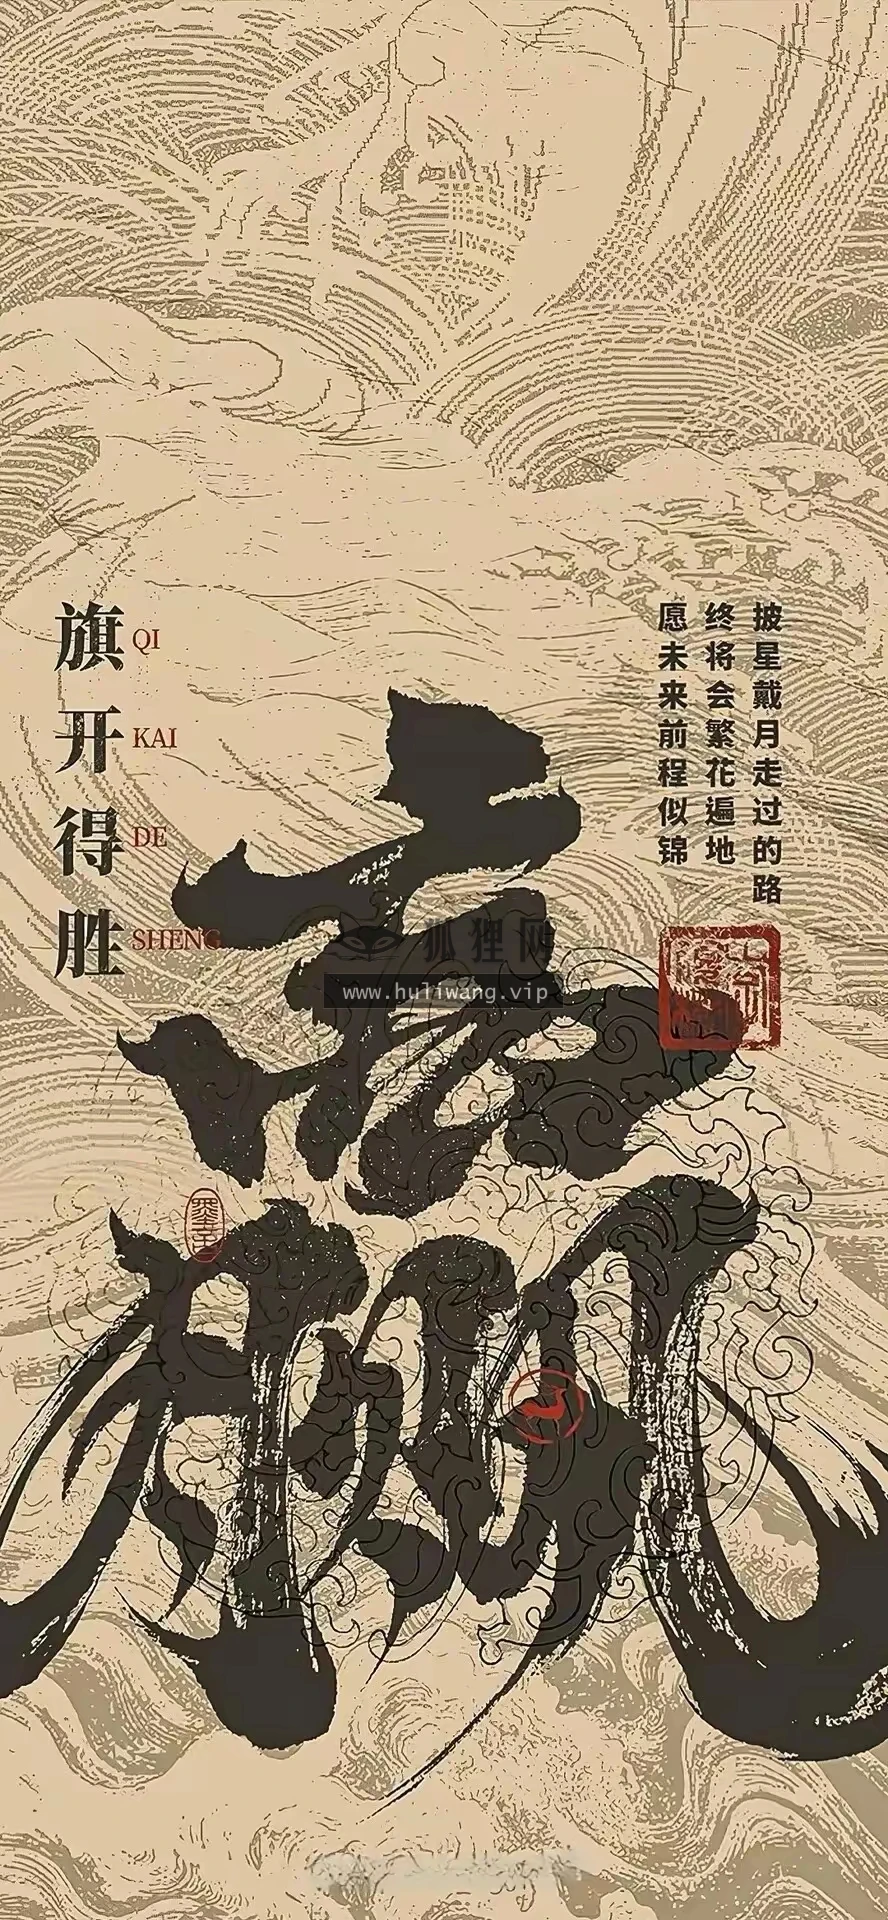 披星戴月走过的路
终将会繁花遍地
愿未来前程似锦
旗开得胜
QI
KAI
DE
SHENG
赢
狐狸网
www.huliwang.vip